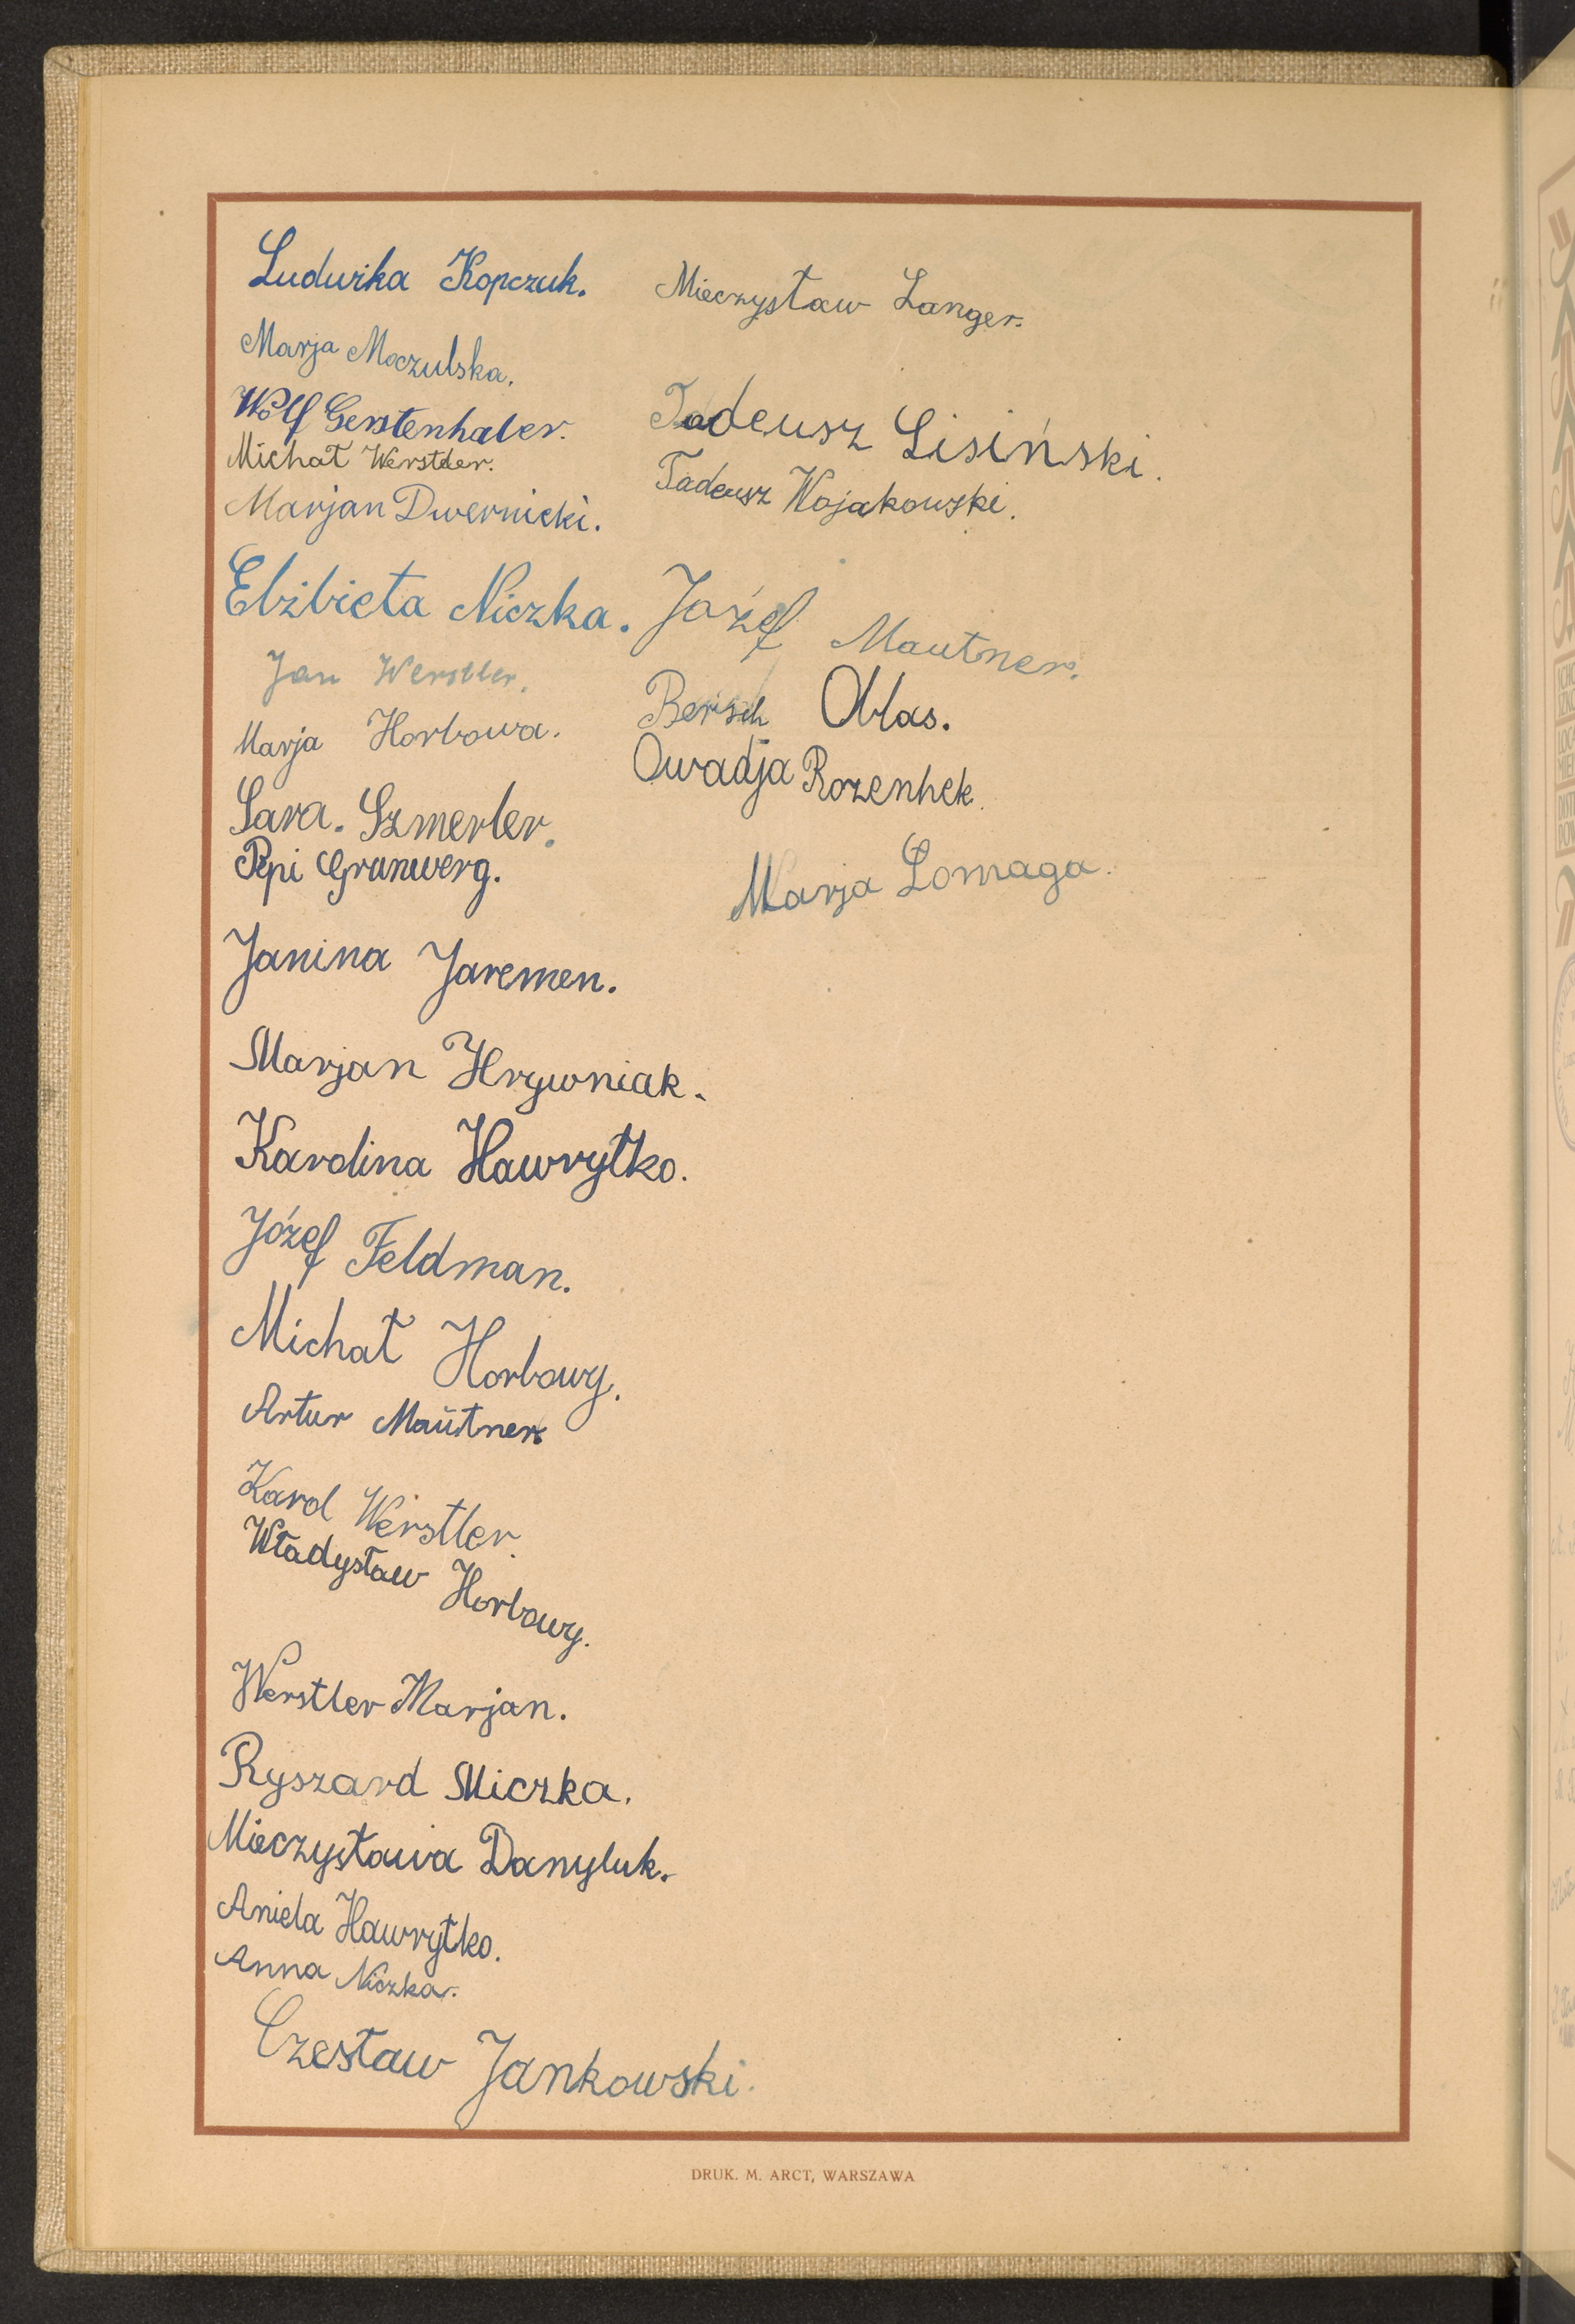 Ludwika Kopczuk.
Marja Moczulska.
Wolf Gerstenhaber.
Michał Werstler.
Marjan Dwernicki.
Elżbieta Niczka.
Jan Werstler.
Marja Horbowa.
Sara. Szmerler.
Pepi Grunwerg.
Janina Jaremen.
Marjan Hrywniak.
Karolina Hawryłko.
Józef Feldman.
Michał Horbowy.
Artur Maŭtner
Karol Werstler.
Władysław Horbowy.
Werstler Marjan.
Ryszard Miczka.
Mieczysława Danyluk.
Aniela Hawryłko.
Anna Niczka.
Czesław Jankowski.
Mieczysław Langer.
Tadeusz Lisiński.
Tadeusz Wojakowski.
Józef Mautner.
Berisch Obłas.
Owadja Rozenhek.
Marja Łomaga.
DRUK. M. ARCT, WARSZAWA